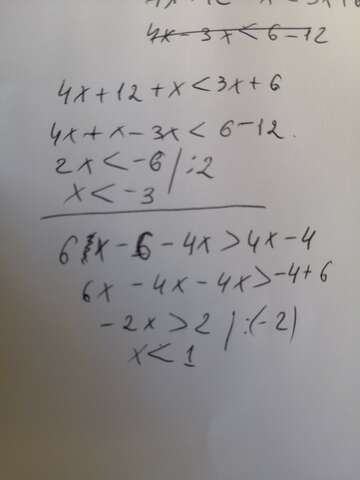 4x-3x<6-12
4x+12+x<3x+6
4x+x-3x<6-12.
2x<-6/:2
x<-3
6x-6-4x>4x-4
6x-4x-4x>-4+6
-2x>2/:(-2)
x<1